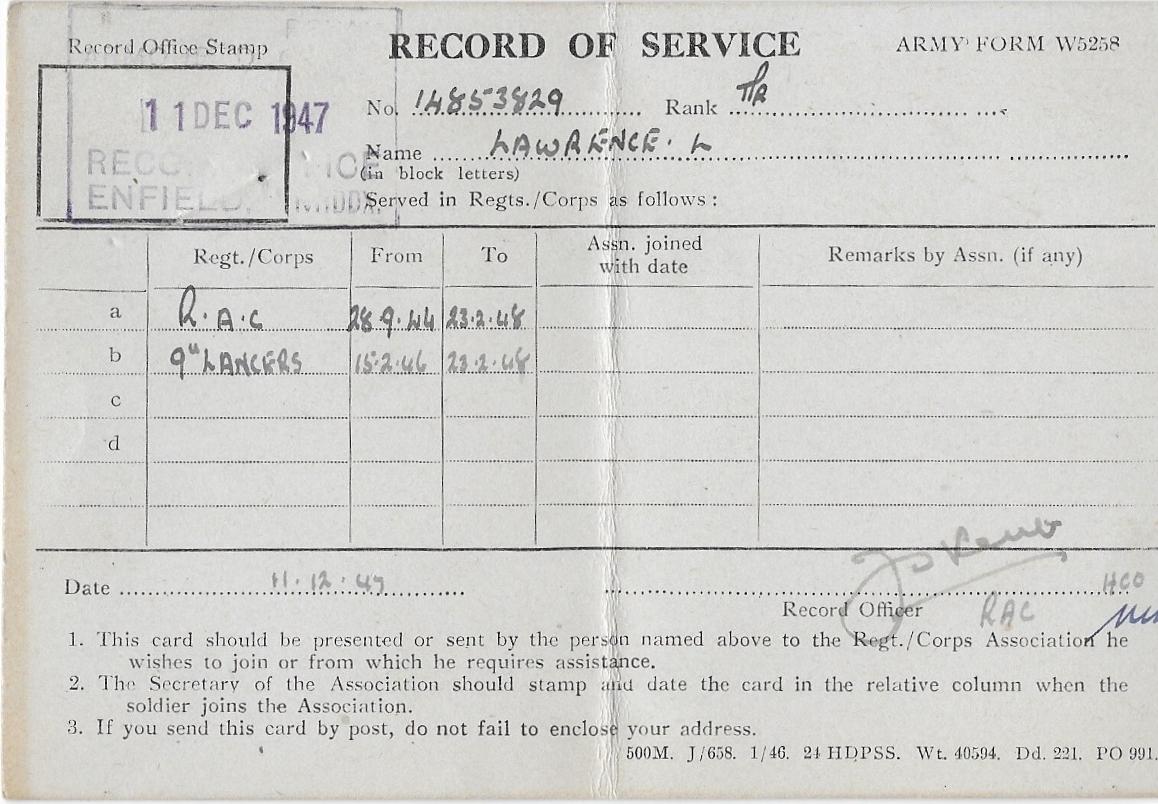 Record Office Stamp
RECORD OF SERVICE
ARMY FORM W5258
11 DEC 1947
ENFIELD, MIDDX.
No. 14853829 Rank T/R
Name LAWRENCE. L
(in block letters)
Served in Regts./Corps as follows :
Regt./Corps From To Assn. joined with date Remarks by Assn. (if any)
a R.A.C 28.9.44 23.2.48
b 9th LANCERS 15.2.46 23.2.48
c
d
Date 11.12.47
HCO
Record Officer RAC
1. This card should be presented or sent by the person named above to the Regt./Corps Association he
wishes to join or from which he requires assistance.
2. The Secretary of the Association should stamp and date the card in the relative column when the
soldier joins the Association.
3. If you send this card by post, do not fail to enclose your address.
500M. J/658. 1/46. 24 HDPSS. Wt. 40594. Dd. 221. PO 991.